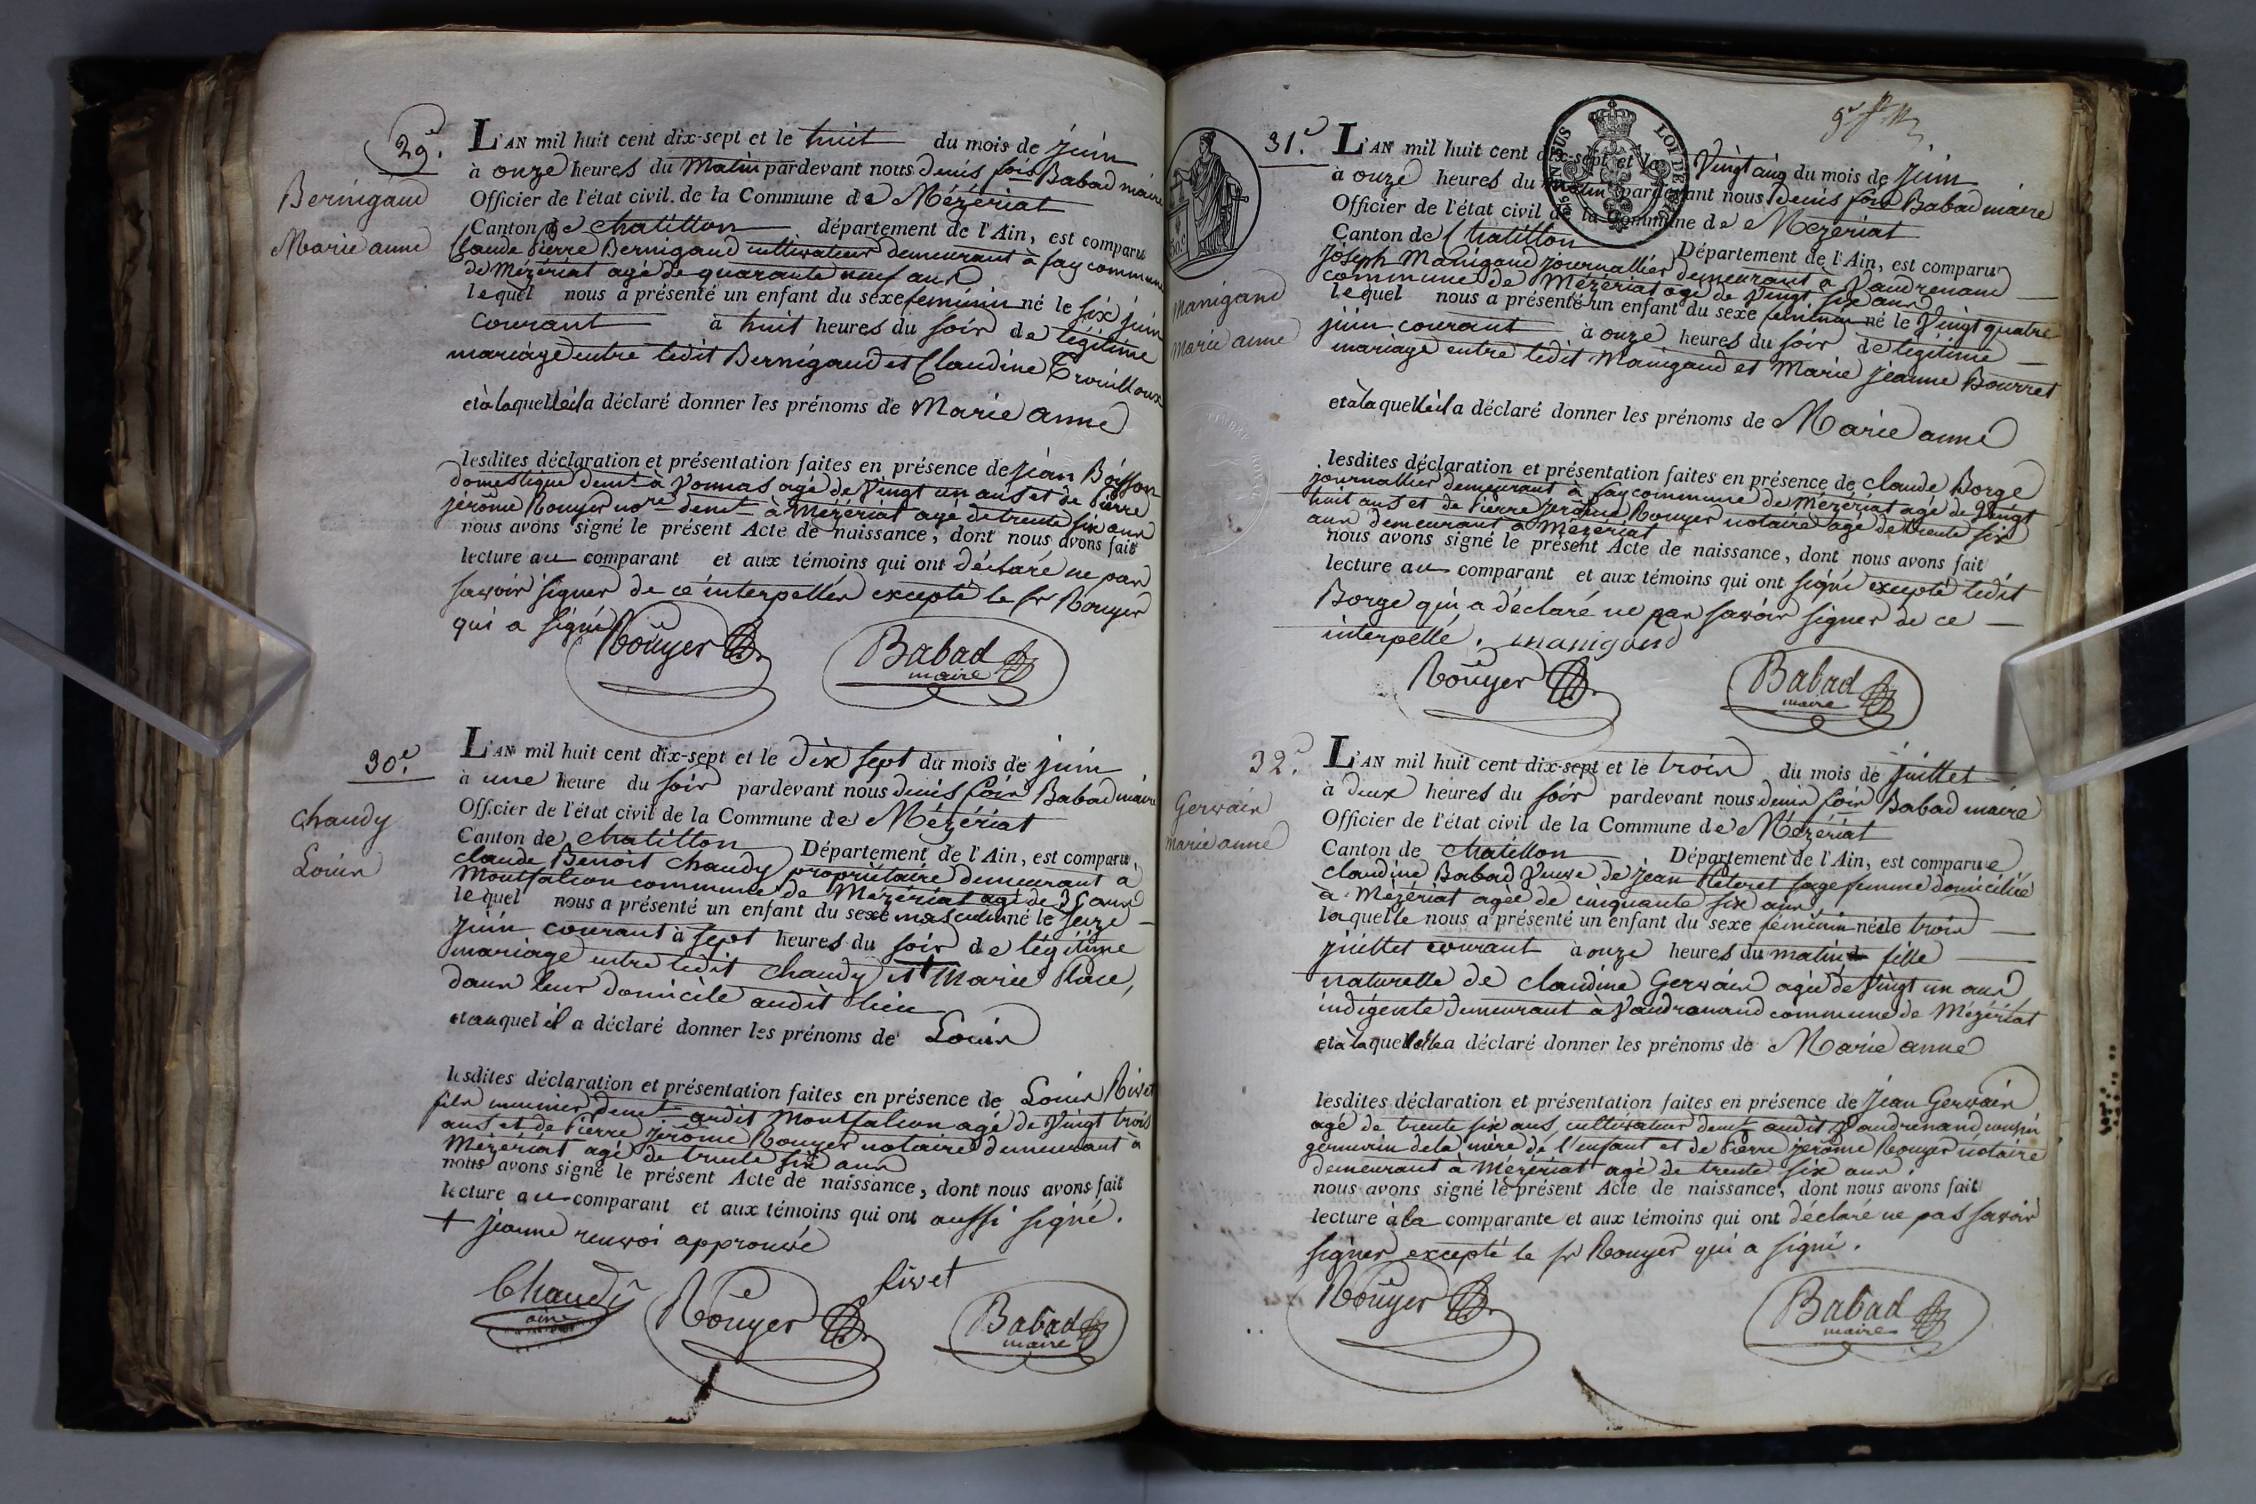 29.e
Bernigaud
Marie anne
L'AN mil huit cent dix-sept et le huit du mois de juin
à onze heures du Matin pardevant nous denis foix Babad maire
Officier de l'état civil de la Commune de Mézériat
Canton de chatillon département de l'Ain, est comparu
Claude Pierre Bernigaud cultivateur demeurant à fay commune
de Mézériat agé de quarante neuf ans
lequel nous a présenté un enfant du sexe feminin né le six juin
courant à huit heures du soir de légitime
mariage entre ledit Bernigaud et Claudine Trouilloux
et à laquelle il a déclaré donner les prénoms de Marie anne
lesdites déclaration et présentation faites en présence de jean Boisson
domestique demt à Vonnas agé de Vingt un ans et de Pierre
jérôme Rouyer nore demt à Mézériat agé de trente six ans
nous avons signé le présent Acte de naissance, dont nous avons fait
lecture au comparant et aux témoins qui ont déclaré ne pas
savoir signer de ce interpellés excepté le sr Rouyer
qui a signé
Rouyer Babad
maire
30.e
chaudy
Louis
L'AN mil huit cent dix-sept et le dix sept du mois de juin
à une heure du soir pardevant nous denis foix Babad maire
Officier de l'état civil de la Commune de Mézériat
Canton de chatillon Département de l'Ain, est comparu
claude Benoit chaudy propriétaire demeurant à
Montfalcon commune de Mézériat agé de 36 ans
lequel nous a présenté un enfant du sexe masculin né le seize
juin courant à sept heures du soir de légitime
mariage entre ledit chaudy et + Marie Place,
dans leur domicile audit lieu
et auquel il a déclaré donner les prénoms de Louis
lesdites déclaration et présentation faites en présence de Louis Rivet
fils meunier demt audit Montfalcon agé de Vingt trois
ans et de Pierre jérôme Rouyer notaire demeurant à
Mézériat agé de trente six ans
nous avons signé le présent Acte de naissance, dont nous avons fait
lecture au comparant et aux témoins qui ont aussi signé.
+ jeanne renvoi approuvé
Chaudy
ainé
Rouyer
Rivet
Babad
maire
31.e
Manigand
Marie anne
L'AN mil huit cent dix-sept et le Vingt cinq du mois de juin
à onze heures du matin pardevant nous denis foix Babad maire
Officier de l'état civil de la Commune de Mézériat
Canton de Chatillon Département de l'Ain, est comparu
Joseph Manigand journallier demeurant à Vaudrenand
commune de Mézériat agé de Vingt six ans
lequel nous a présenté un enfant du sexe feminin né le Vingt quatre
juin courant à onze heures du soir de légitime
mariage entre ledit Manigand et Marie jeanne Bourret
et à laquelle il a déclaré donner les prénoms de Marie anne
lesdites déclaration et présentation faites en présence de claude Borge
journallier demeurant à fay commune de Mézériat agé de Vingt
huit ans et de Pierre jérôme Rouyer notaire agé de trente six
ans demeurant à Mézériat
nous avons signé le présent Acte de naissance, dont nous avons fait
lecture au comparant et aux témoins qui ont signé excepté ledit
Borge qui a déclaré ne pas savoir signer de ce
interpellé. manigand
Rouyer Babad
maire
32.e
Gervain
Marie anne
L'AN mil huit cent dix-sept et le trois du mois de juillet
à deux heures du soir pardevant nous denis foix Babad maire
Officier de l'état civil de la Commune de Mézériat
Canton de chatillon Département de l'Ain, est comparue
claudine Babad Veuve de jean Réteret sage femme domiciliée
à Mézériat agée de cinquante six ans
laquelle nous a présenté un enfant du sexe féminin née le trois
juillet courant à onze heures du matin fille
naturelle de claudine Gervain agée de Vingt un ans
indigente demeurant à Vaudrenand commune de Mézériat
et à laquelle elle a déclaré donner les prénoms de Marie anne
lesdites déclaration et présentation faites en présence de jean Gervain
agé de trente six ans, cultivateur demt audit Vaudrenand cousin
germain de la mère de l'enfant et de Pierre jérôme Rouyer notaire
demeurant à Mézériat agé de trente six ans.
nous avons signé le présent Acte de naissance, dont nous avons fait
lecture à la comparante et aux témoins qui ont déclaré ne pas savoir
signer excepté le sr Rouyer qui a signé.
Rouyer Babad
maire